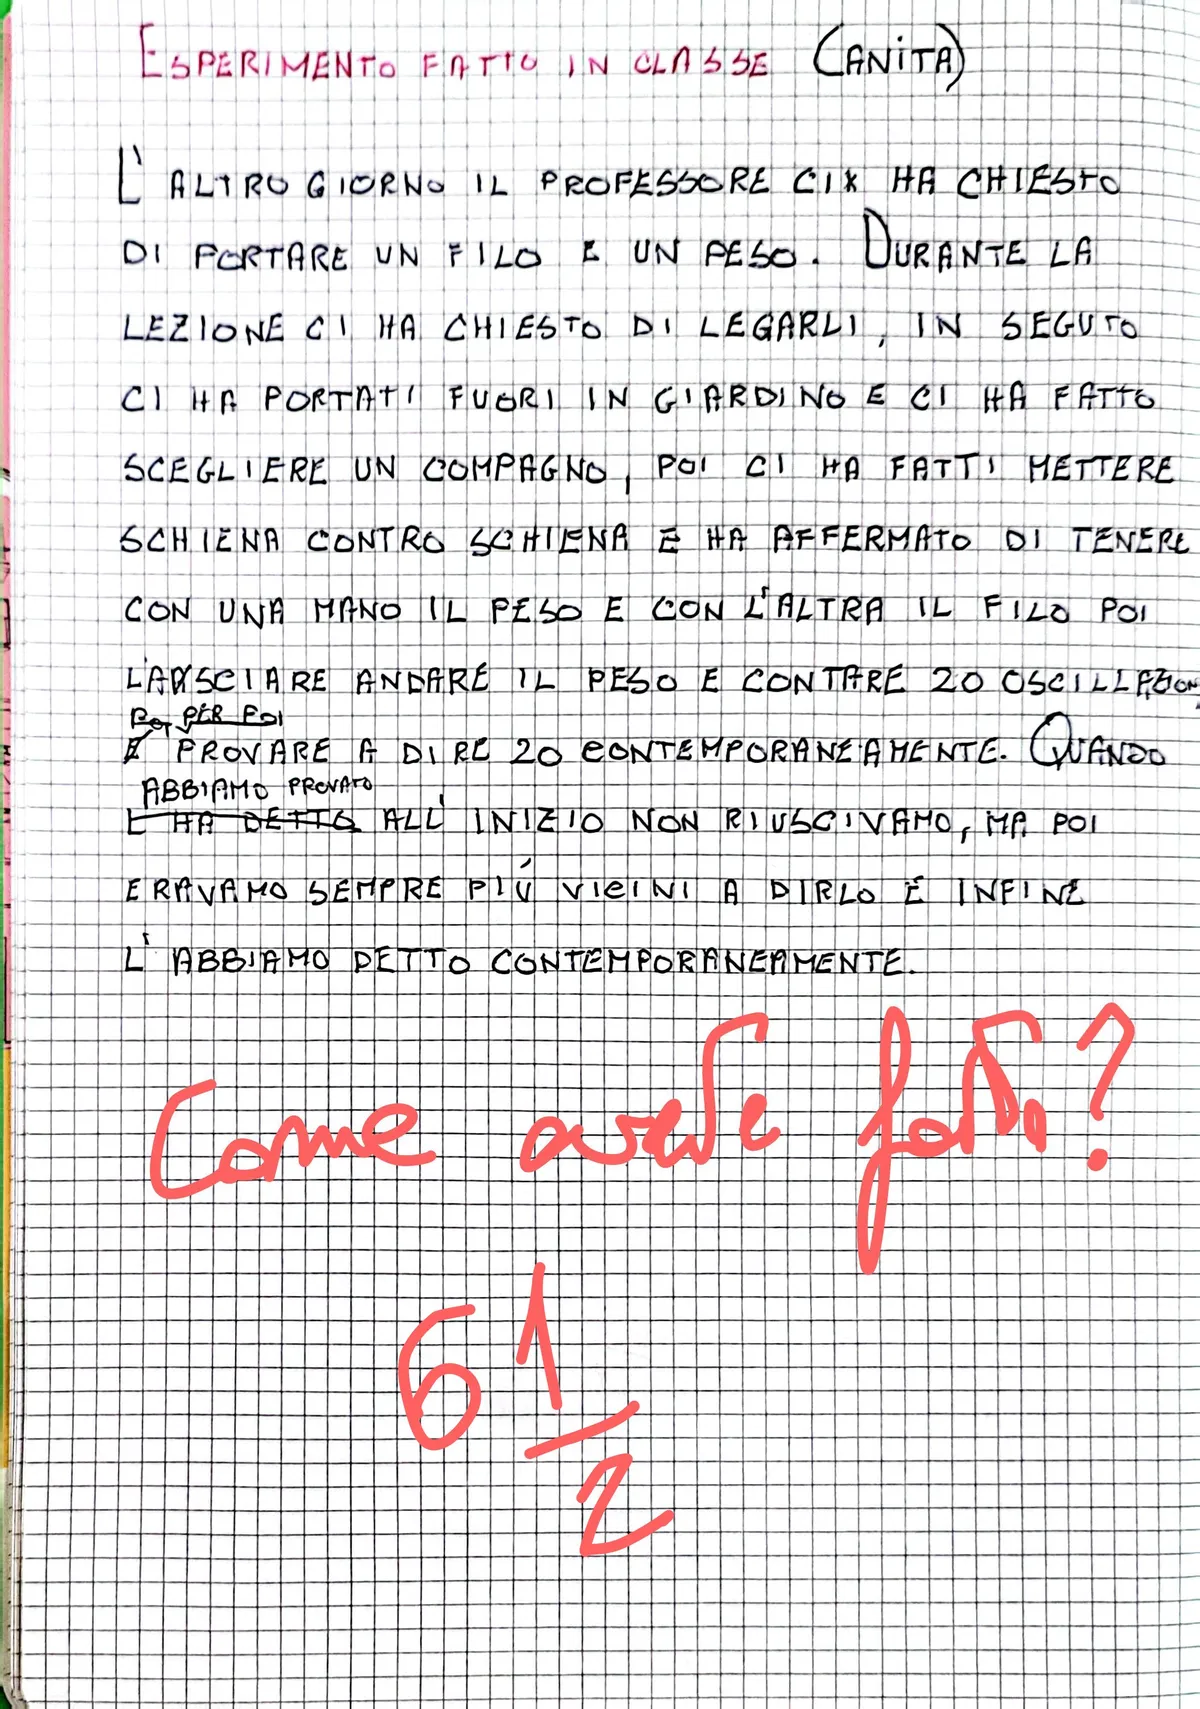 ESPERIMENTO FATTO IN CLASSE (ANITA)
L'ALTRO GIORNO IL PROFESSORE CI HA CHIESTO
DI PORTARE UN FILO E UN PESO. DURANTE LA
LEZIONE CI HA CHIESTO DI LEGARLI, IN SEGUTO
CI HA PORTATI FUORI IN GIARDINO E CI HA FATTO
SCEGLIERE UN COMPAGNO, POI CI HA FATTI METTERE
SCHIENA CONTRO SCHIENA E HA AFFERMATO DI TENERE
CON UNA MANO IL PESO E CON L'ALTRA IL FILO POI
LASCIARE ANDARE IL PESO E CONTARE 20 OSCILLAZIONI
PER POI
PROVARE A DIRE 20 CONTEMPORANEAMENTE. QUANDO
ABBIAMO PROVATO
E HA DETTO ALL'INIZIO NON RIUSCIVAMO, MA POI
ERAVAMO SEMPRE PIÚ VICINI A DIRLO E INFINE
L'ABBIAMO DETTO CONTEMPORANEAMENTE.
Come avete fatto?
6 1/2